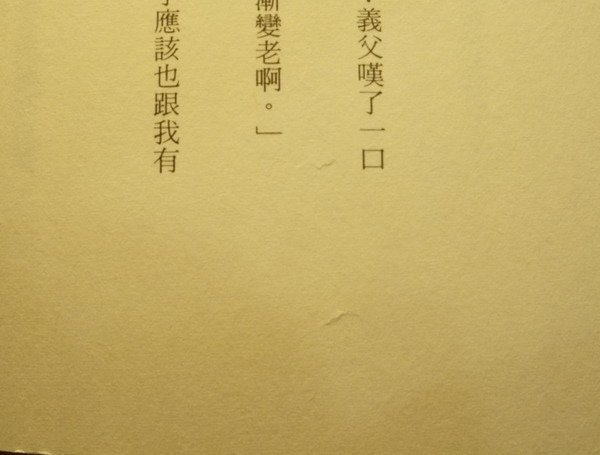 義父嘆了一口
漸變老啊。」
應該也跟我有